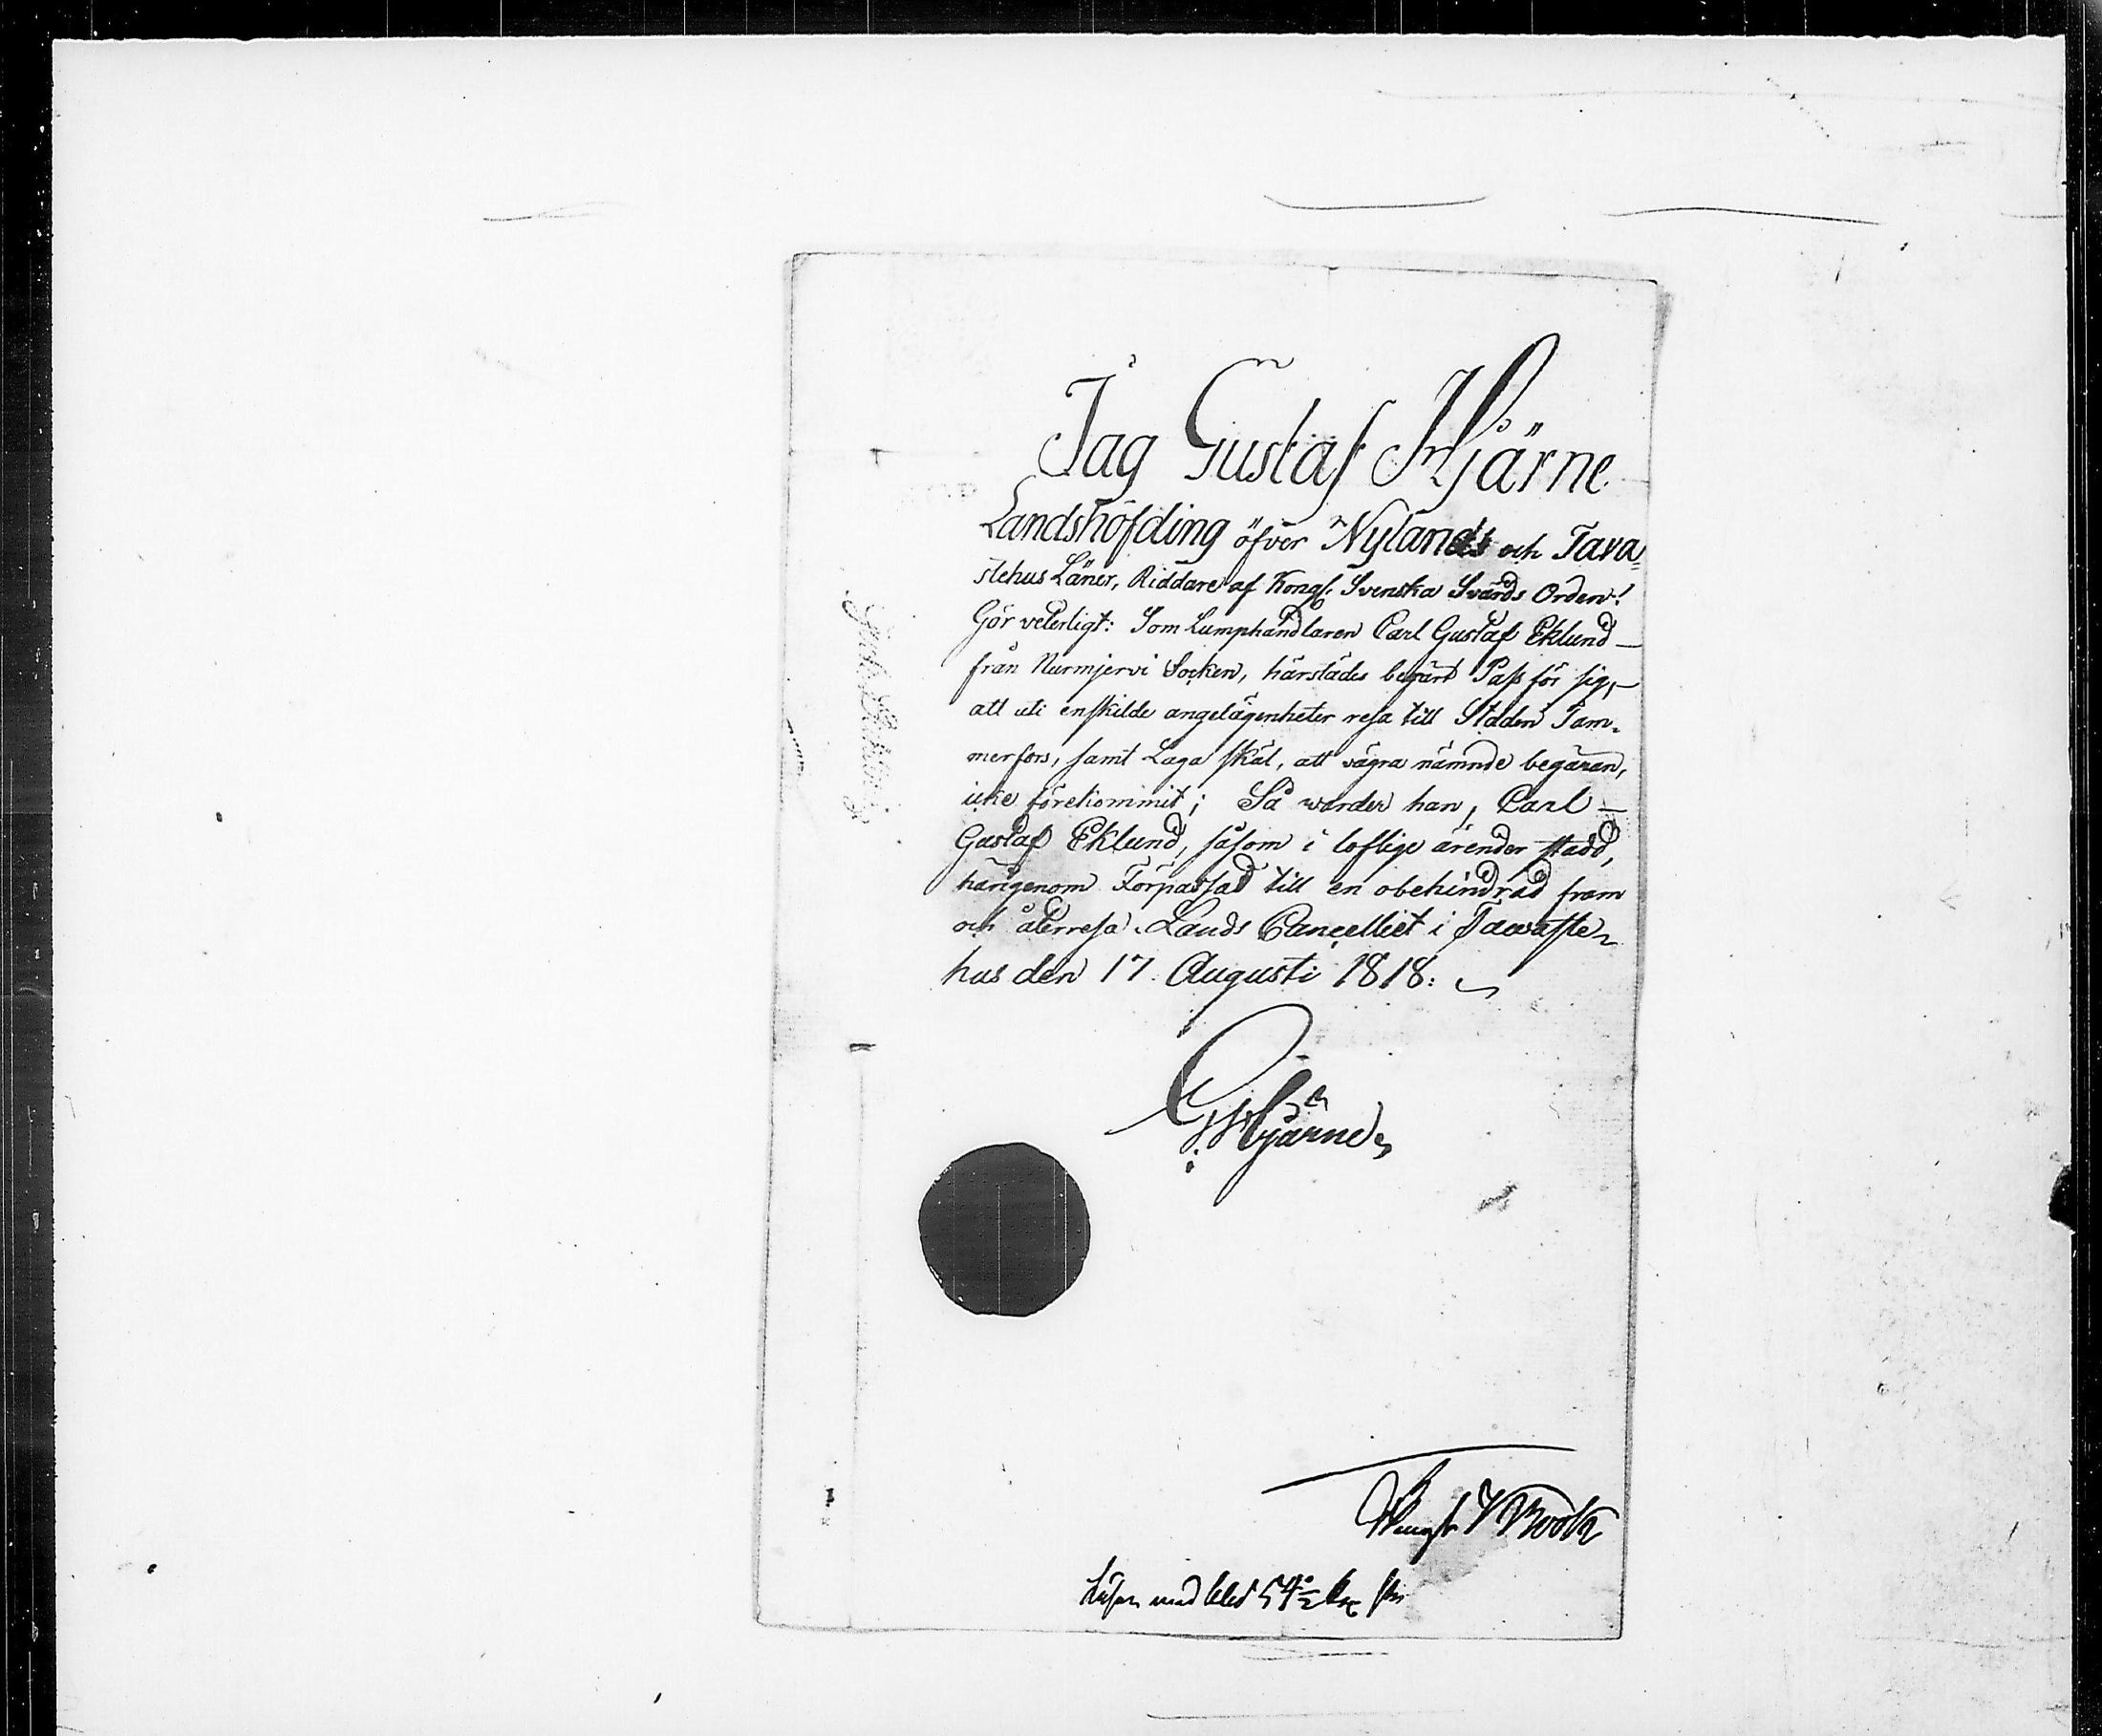 Jag Gustaf Hjärne
Landshöfding öfver Nylands och Tava=
stehus Läner, Riddare af Kongl. Svenska Svärds Orden!
Gör veterligt: Som Lumphandlaren Carl Gustaf Eklund —
från Nurmjervi Socken, härstädes begärt Pass för sig, —
att uti enskilde angelägenheter resa till Staden Tam-
merfors, samt Laga skäl, att vägra nämnde begäran,
icke förekommit; Så warder han, Carl —
Gustaf Eklund, såsom i loflige ärender stadd,
härigenom Förpassad till en obehindrad fram
och återresa. Lands Cancelliet i Tawaste-
hus den 17 Augusti 1818.
G Hjärne
Lösen med